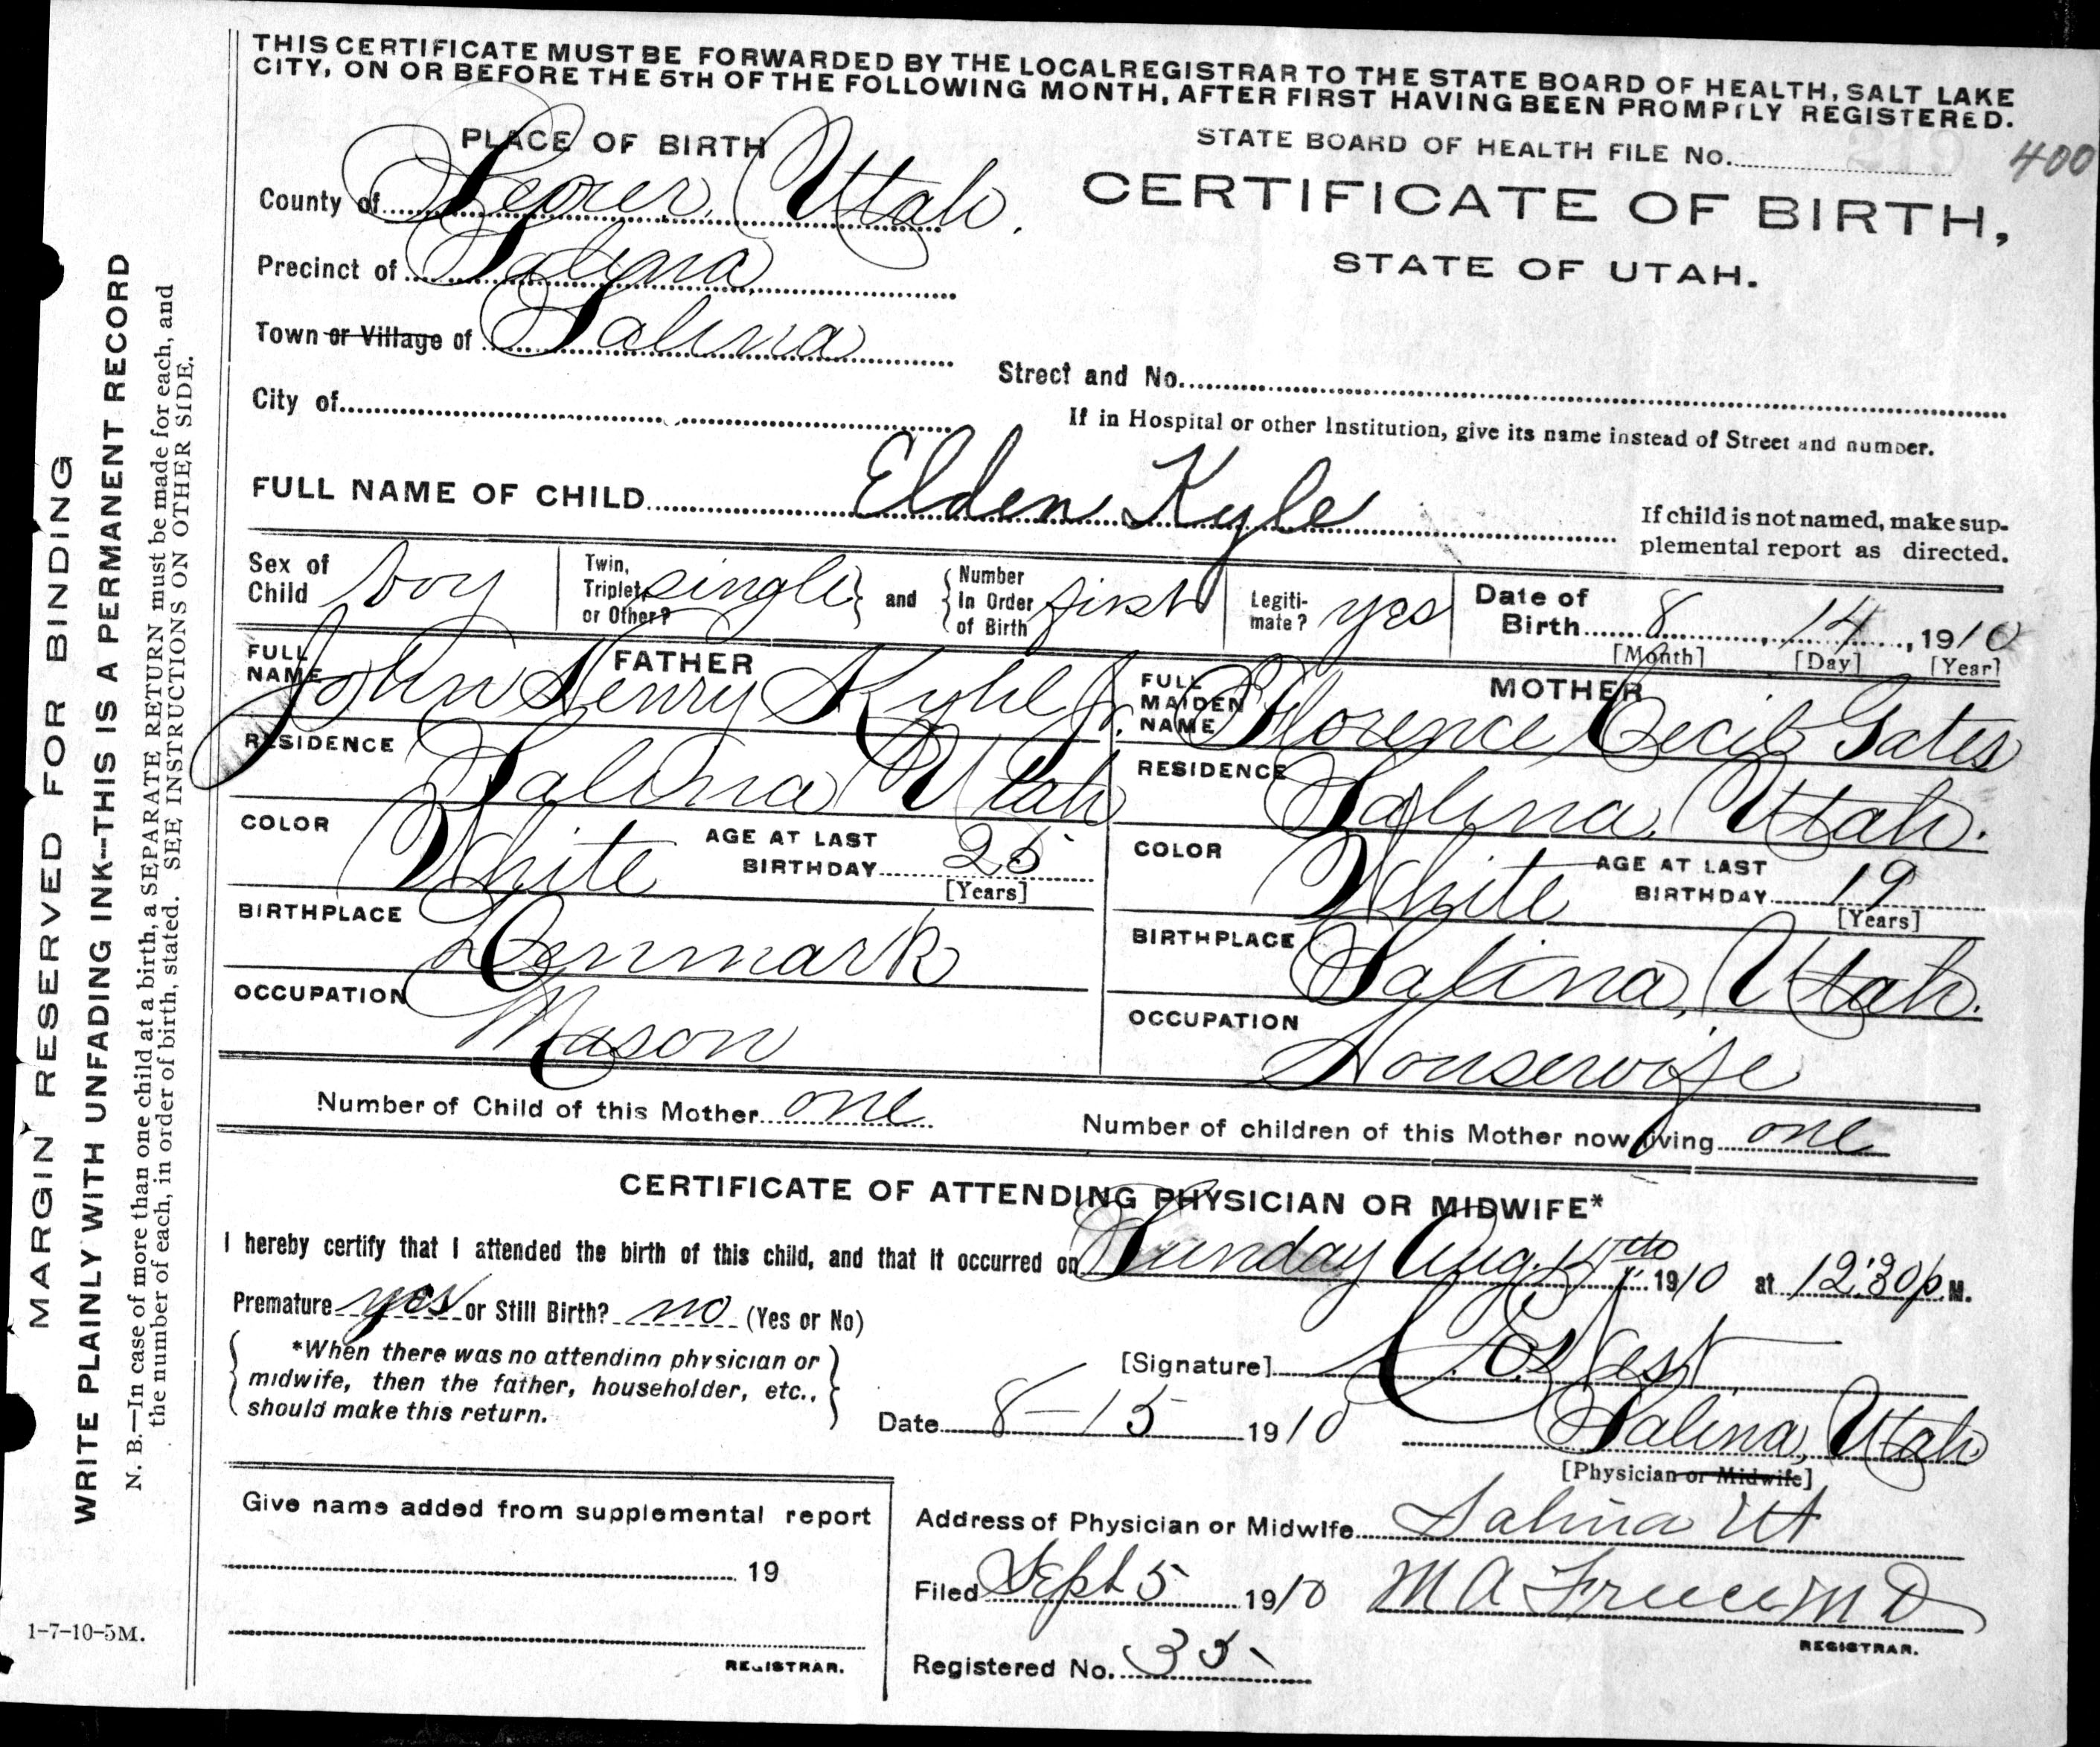 THIS CERTIFICATE MUST BE FORWARDED BY THE LOCAL REGISTRAR TO THE STATE BOARD OF HEALTH, SALT LAKE
CITY, ON OR BEFORE THE 5TH OF THE FOLLOWING MONTH, AFTER FIRST HAVING BEEN PROMPTLY REGISTERED.
PLACE OF BIRTH
STATE BOARD OF HEALTH FILE No. 400
County of Sevier, Utah.
CERTIFICATE OF BIRTH,
Precinct of Salina
STATE OF UTAH.
Town or Village of Salina
Street and No.
City of
If in Hospital or other Institution, give its name instead of Street and number.
FULL NAME OF CHILD Elden Kyle
If child is not named, make sup-
plemental report as directed.
Sex of Child boy
Twin, Triplet, or Other? single and Number In Order of Birth first
Legiti-mate? yes
Date of Birth 8, 14, 1910
[Month] [Day] [Year]
FATHER
FULL NAME John Henry Kyhl Jr.
RESIDENCE Salina Utah
COLOR White AGE AT LAST BIRTHDAY 25 [Years]
BIRTHPLACE Denmark
OCCUPATION Mason
MOTHER
FULL MAIDEN NAME Florence Cecil Gates
RESIDENCE Salina, Utah.
COLOR White AGE AT LAST BIRTHDAY 19 [Years]
BIRTHPLACE Salina, Utah.
OCCUPATION Housewife
Number of Child of this Mother one
Number of children of this Mother now living one
CERTIFICATE OF ATTENDING PHYSICIAN OR MIDWIFE*
I hereby certify that I attended the birth of this child, and that it occurred on Sunday Aug. 14th 1910 at 12:30 p M.
Premature yes or Still Birth? no (Yes or No)
*When there was no attending physician or
midwife, then the father, householder, etc.,
should make this return.
[Signature] West
Date 8-15 1910
Salina, Utah
[Physician or Midwife]
Give name added from supplemental report
19
REGISTRAR.
Address of Physician or Midwife Salina Ut
Filed Sept 5 1910 M A Freece M D
REGISTRAR.
Registered No. 35
MARGIN RESERVED FOR BINDING
WRITE PLAINLY WITH UNFADING INK—THIS IS A PERMANENT RECORD
N. B.—In case of more than one child at a birth, a SEPARATE RETURN must be made for each, and
the number of each, in order of birth, stated. SEE INSTRUCTIONS ON OTHER SIDE.
1-7-10-5M.